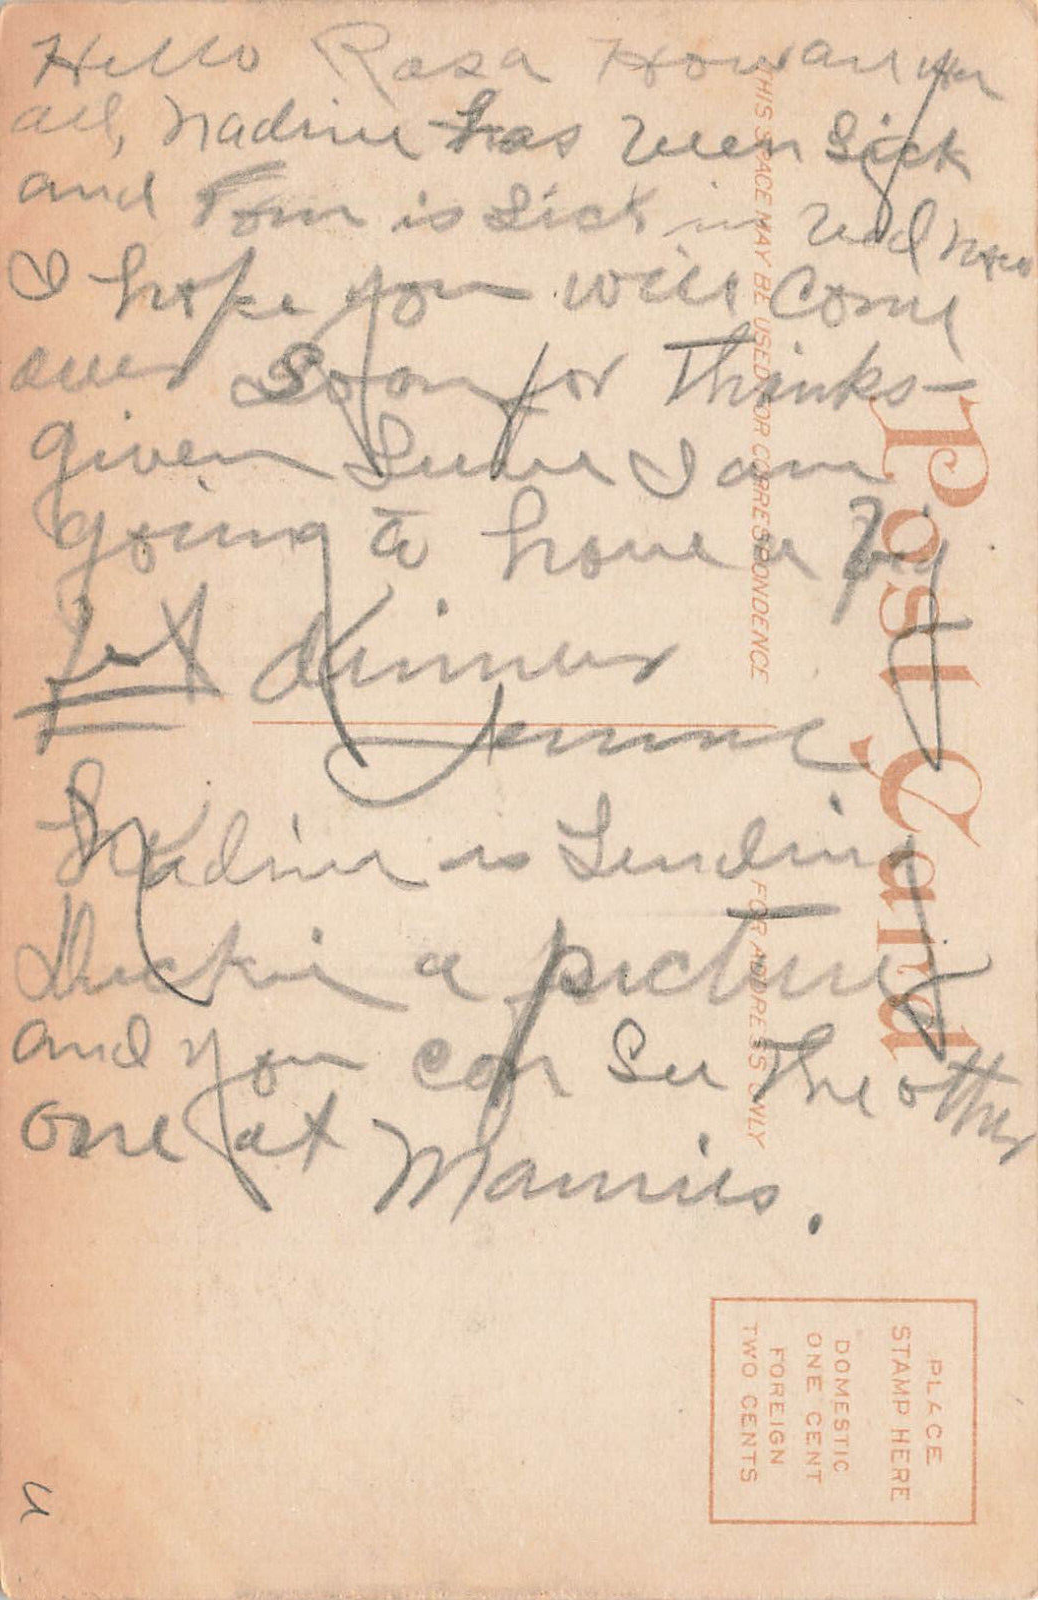 Hello Rosa How are you
all, Nadine has been sick
and Tom is sick in bed now
I hope you will come
over soon for Thinks-
given
I am
going to have a big
dinner
Jennie
Nadine is sending
Duckie a picture
and you can see the other
one at Mamies.
Post Card
THIS SPACE MAY BE USED FOR CORRESPONDENCE
FOR ADDRESS ONLY
PLACE
STAMP HERE
DOMESTIC
ONE CENT
FOREIGN
TWO CENTS